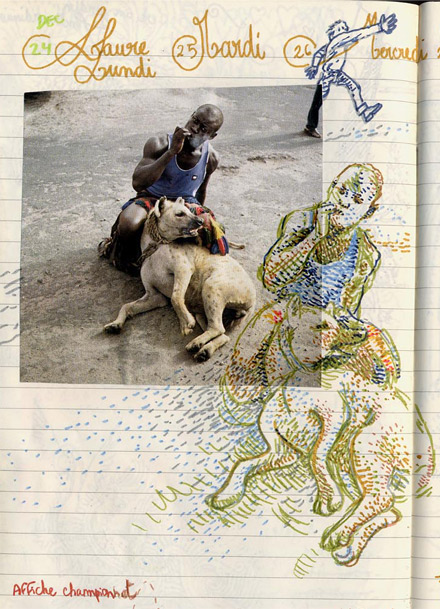 DEC
24 Laure 25 Mardi 26 Mercredi
Lundi
Affiche championnat